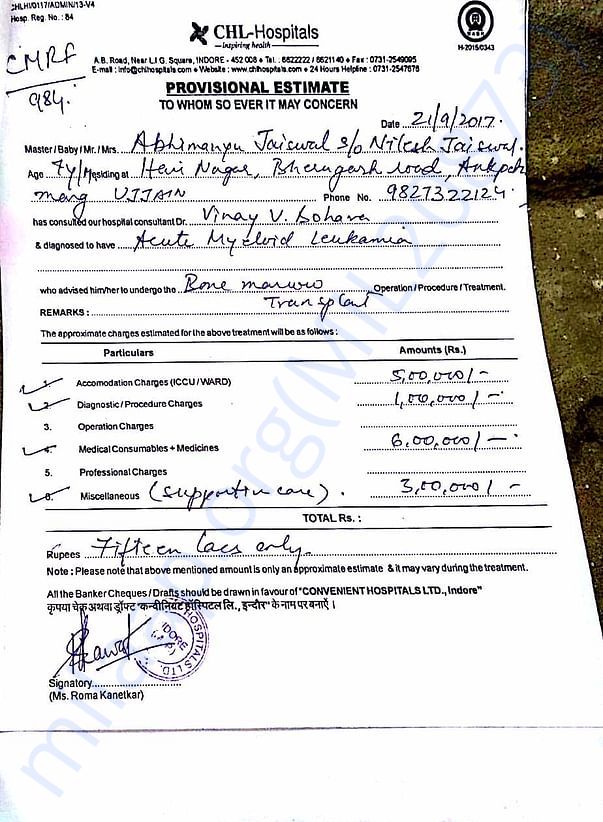 CHLHI/0117/ADMIN/13-V4
Hosp. Reg. No.: 84
CMRF
984.
CHL-Hospitals
Inspiring health
NABH
H-2015/0343
A.B. Road, Near L.I.G. Square, INDORE - 452 008 ● Tel. : 6622222 / 6621140 ● Fax : 0731-2549095
E-mail : info@chlhospitals.com ● Website : www.chlhospitals.com ● 24 Hours Helpline : 0731-2547676
PROVISIONAL ESTIMATE
TO WHOM SO EVER IT MAY CONCERN
Date 21/9/2017.
Master / Baby / Mr. / Mrs. Abhimanyu Jaiswal s/o Nilesh Jaiswal.
Age 7y/ Residing at Hari Nagar, Bherugarh road, Ankpat
marg UJJAIN Phone No. 9827322124.
has consulted our hospital consultant Dr. Vinay V. Bohara
& diagnosed to have Acute Myeloid Leukamia
who advised him/her to undergo the Bone marrow Operation / Procedure / Treatment.
Transplant
REMARKS :
The approximate charges estimated for the above treatment will be as follows :
Particulars Amounts (Rs.)
1. Accomodation Charges (ICCU / WARD) 5,00,000/-
2. Diagnostic / Procedure Charges 1,00,000/-
3. Operation Charges
4. Medical Consumables + Medicines 6,00,000/-
5. Professional Charges
6. Miscellaneous (supportin care). 3,00,000/-
TOTAL Rs. :
Rupees Fifteen lacs only
Note : Please note that above mentioned amount is only an approximate estimate & it may vary during the treatment.
All the Banker Cheques / Drafts should be drawn in favour of "CONVENIENT HOSPITALS LTD., Indore"
कृपया चेक अथवा ड्रॉफ्ट "कन्वीनियंट हॉस्पिटल लि., इन्दौर" के नाम पर बनाऐं ।
HOSPITALS LTD.
INDORE
(M.P.)
Signatory
(Ms. Roma Kanetkar)